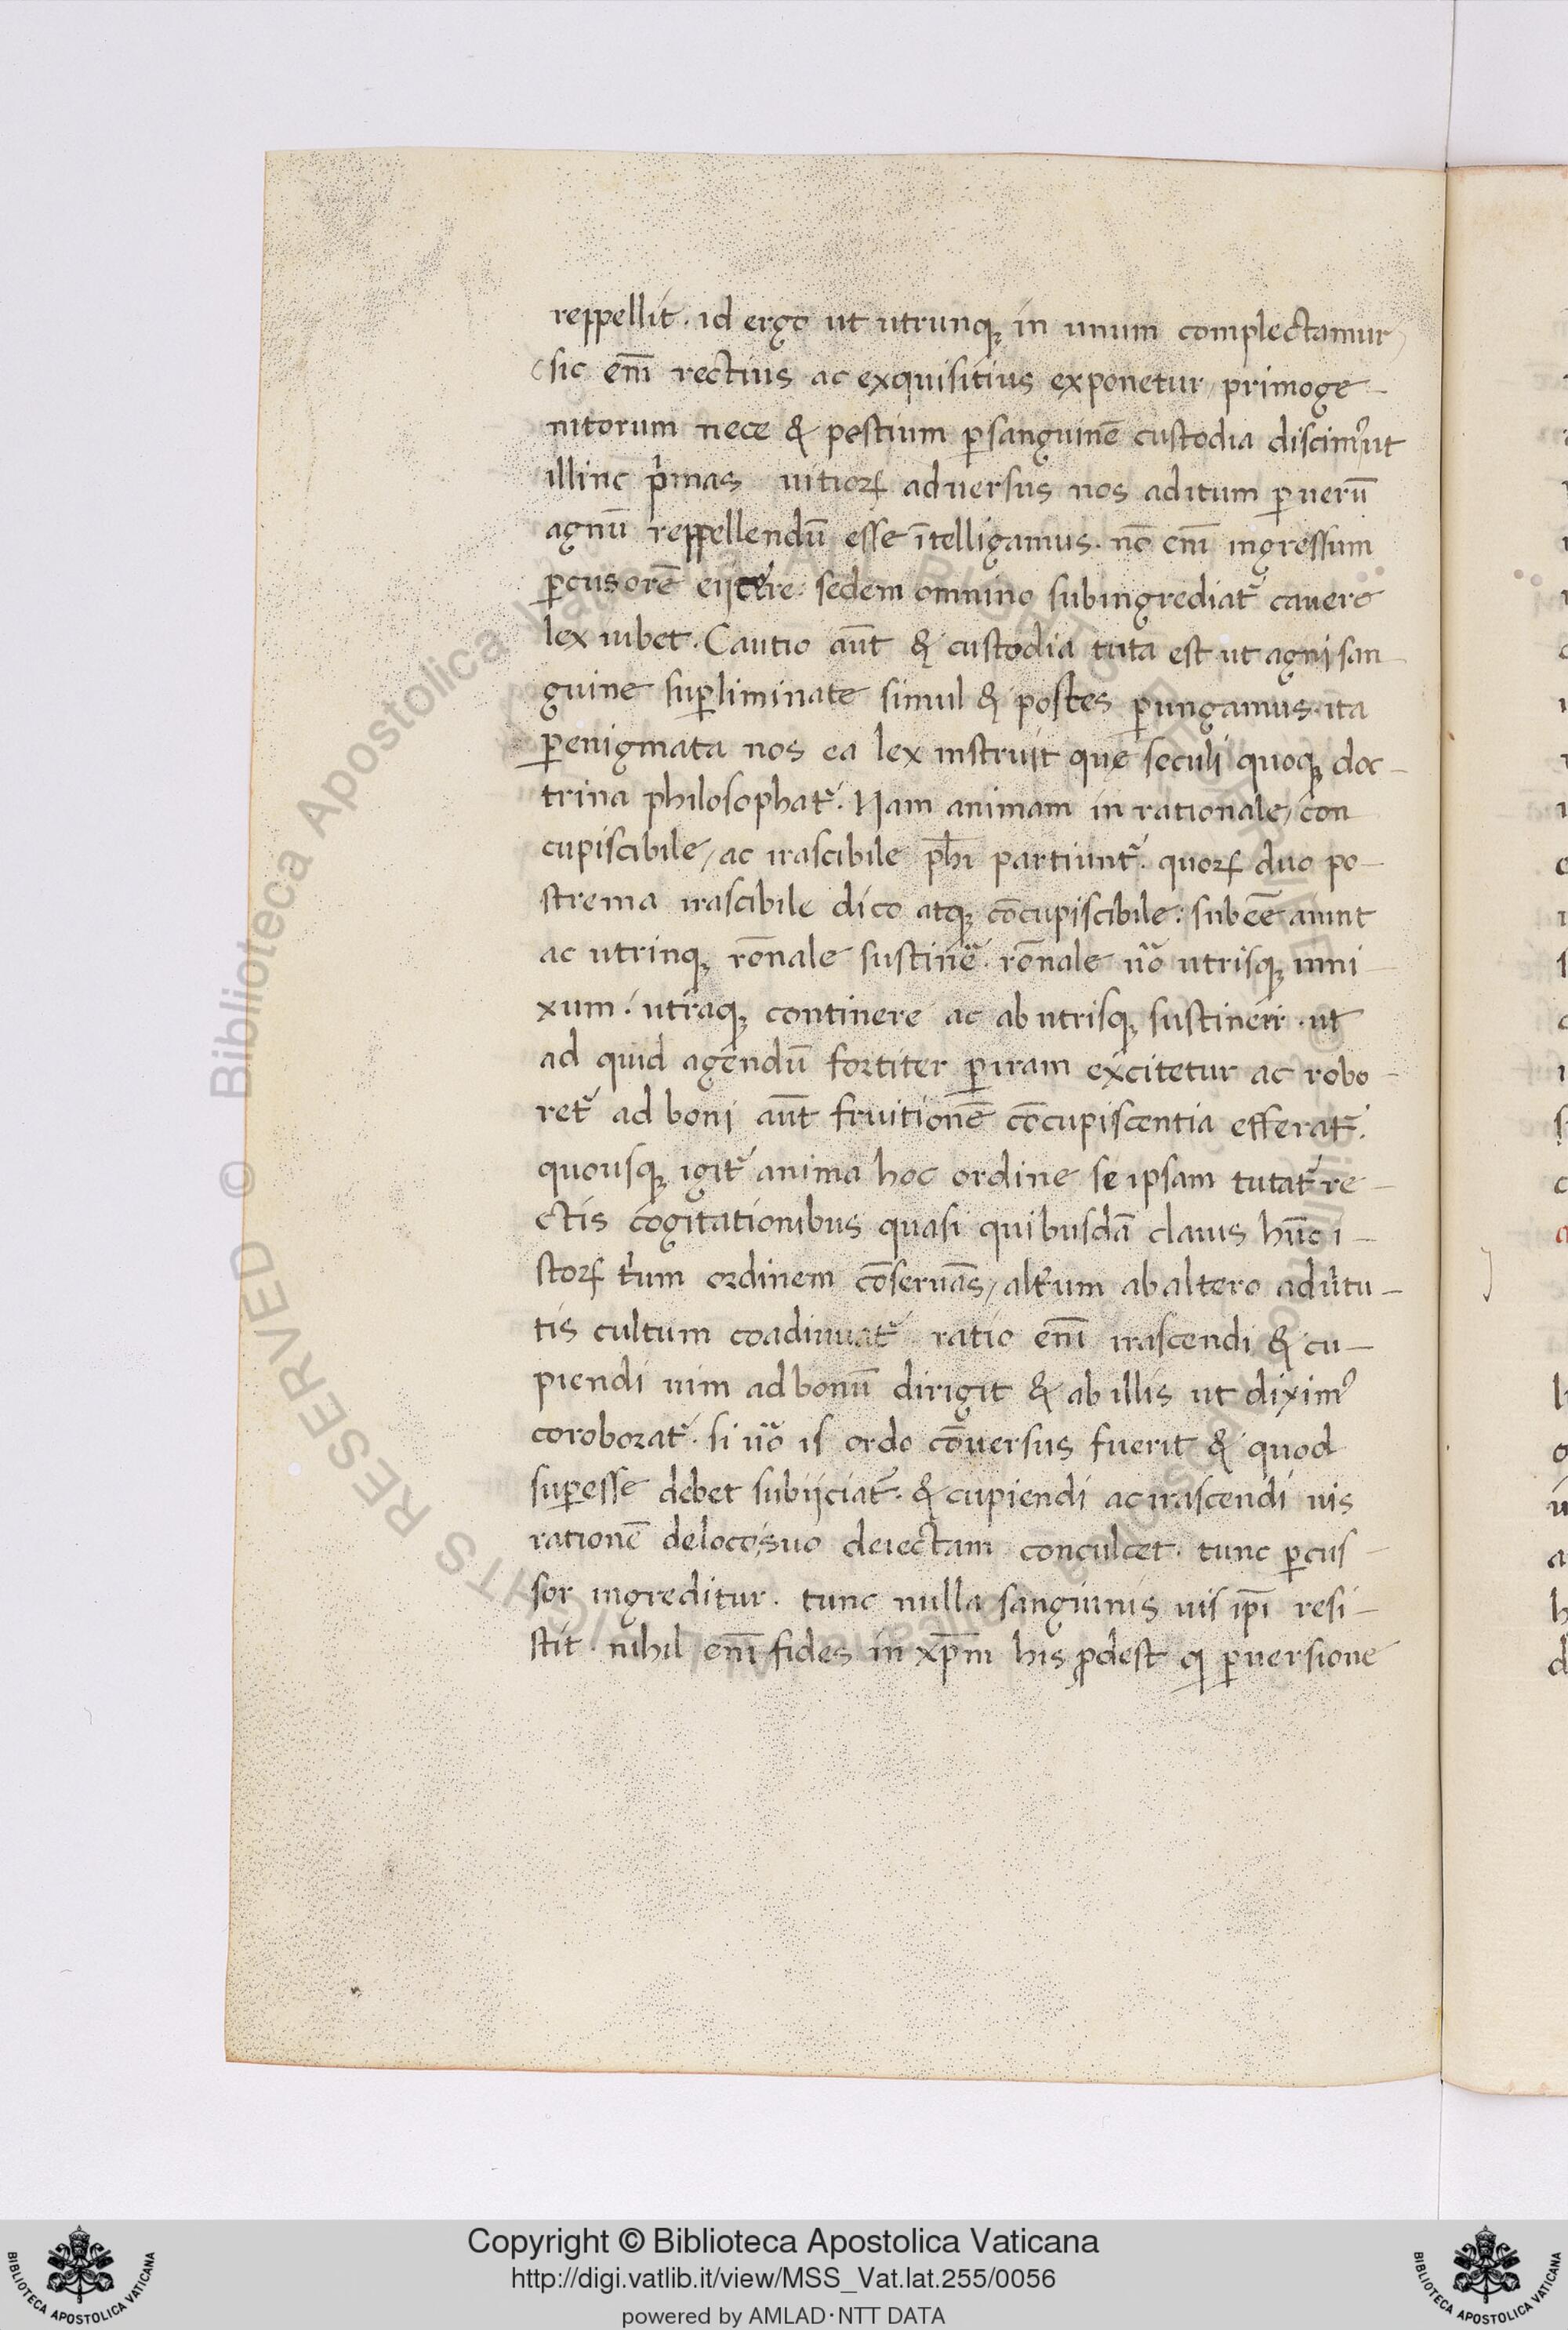 reppellit. id ergo ut utrunq; in unum complectamur
(sic em̄ rectius ac exquisitius exponetur) primoge-
nitorum nece & postium ꝑsanguinē custodia discimꝰ ut
illinc pͥmas uitioꝝ adversus nos aditum ꝑ uerū
agnū reppellendū esse ītelligamus. nō em̄ ingressum
ꝑcusorē eijcere: sedem omnino subingrediat᷑ cauere
lex iubet. Cautio aūt & custodia tuta est ut agni san-
guine suꝑliminate simul & postes ꝑungamus. ita
ꝑenigmata nos ea lex instruit que seculi quoq; doc-
trina philosophat᷑. Nam animam in rationale, con
cupiscibile, ac irascibile ph̄i partiunt᷑. quoꝝ duo po-
strema irascibile dico atq; cōcupiscibile: subēē aiunt
ac utrinq; rōnale sustinē᷑. rōnale uͦo utrisq; inni
xum. utraq; continere ac ab utrisq; sustineri. ut
ad quid agendū fortiter ꝑ iram excitetur ac robo-
ret᷑ ad boni aūt fruitionē cōcupiscentia efferat᷑.
quousq; igit᷑ anima hoc ordine se ipsam tutat᷑ re-
ctis cogitationibus quasi quibusdā clauis hūc i-
stoꝝ tͥum ordinem cōseruās, alt᷑um ab altero aduͥtu-
tis cultum coadiuuat᷑ ratio em̄ irascendi & cu-
piendi uim ad bonū dirigit & ab illis ut diximꝰ
coroborat᷑. si uͦo is ordo cōuersus fuerit & quod
suꝑesse debet subijciat᷑. & cupiendi ac irascendi uis
rationē de loco suo deiectam conculcet. tunc ꝑcus-
sor ingreditur. tunc nulla sanguinis uis ip̄i resi-
stit. nihil em̄ fides in xp̄m his ꝓdest qͥ ꝑuersione
Copyright © Biblioteca Apostolica Vaticana
http://digi.vatlib.it/view/MSS_Vat.lat.255/0056
powered by AMLAD·NTT DATA